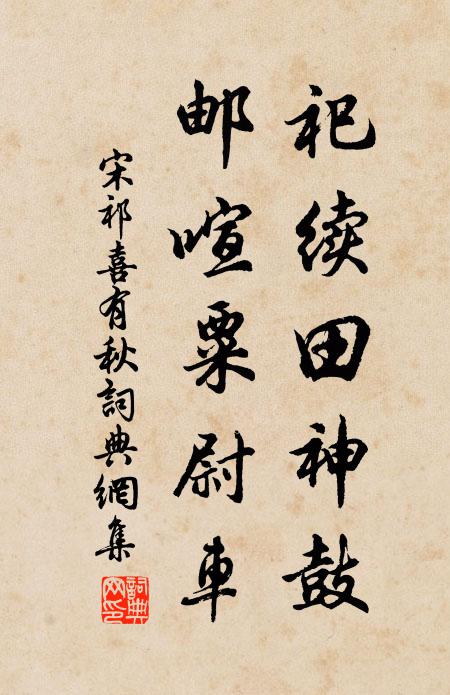 祀续田神鼓
邮喧粟尉車
宋祁喜有秋詞典網集
詞典网印